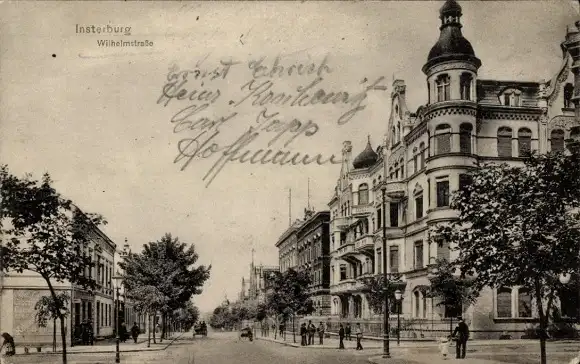 Insterburg
Wilhelmstraße
Ernst Christ
Heinz
Carl Japp
Hoffmann